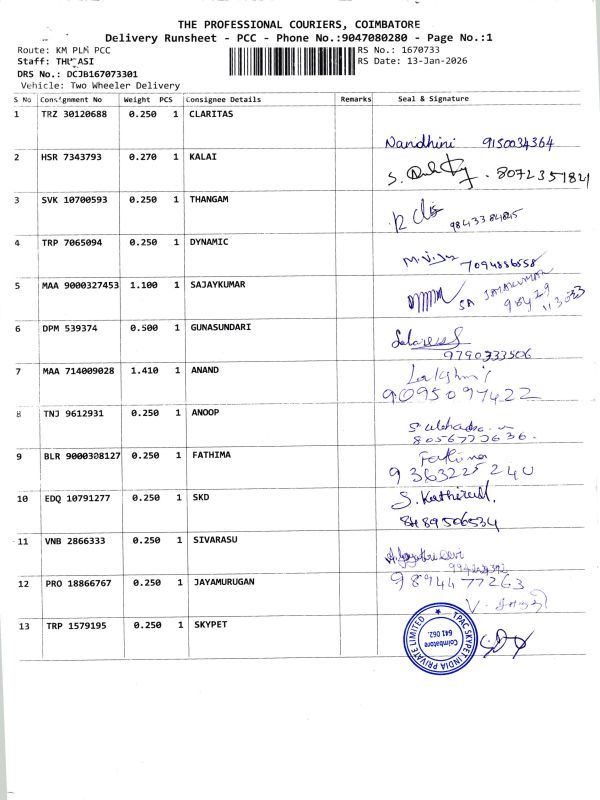 THE PROFESSIONAL COURIERS, COIMBATORE
Delivery Runsheet - PCC - Phone No.:9047080280 - Page No.:1
Route: KM PLM PCC
RS No.: 1670733
Staff: THULASI
RS Date: 13-Jan-2026
DRS No.: DCJB167073301
Vehicle: Two Wheeler Delivery
S No Consignment No Weight PCS Consignee Details Remarks Seal & Signature
1 TRZ 30120688 0.250 1 CLARITAS
Nandhini 9150034364
2 HSR 7343793 0.270 1 KALAI
S. 8072351821
3 SVK 10700593 0.250 1 THANGAM
4 TRP 7065094 0.250 1 DYNAMIC
7094886558
5 MAA 9000327453 1.100 1 SAJAYKUMAR
SA JAYAKUMAR
98429
113033
6 DPM 539374 0.500 1 GUNASUNDARI
9790333506
7 MAA 714009028 1.410 1 ANAND
Lakshmi
9095097422
8 TNJ 9612931 0.250 1 ANOOP
8056772636.
9 BLR 9000308127 0.250 1 FATHIMA
Fathima
9363225240
10 EDQ 10791277 0.250 1 SKD
S. Kathirvel.
8489506534
11 VNB 2866333 0.250 1 SIVARASU
12 PRO 18866767 0.250 1 JAYAMURUGAN
9894477263
13 TRP 1579195 0.250 1 SKYPET
TPAC SKYPET INDIA PRIVATE LIMITED
Coimbatore
641 062.